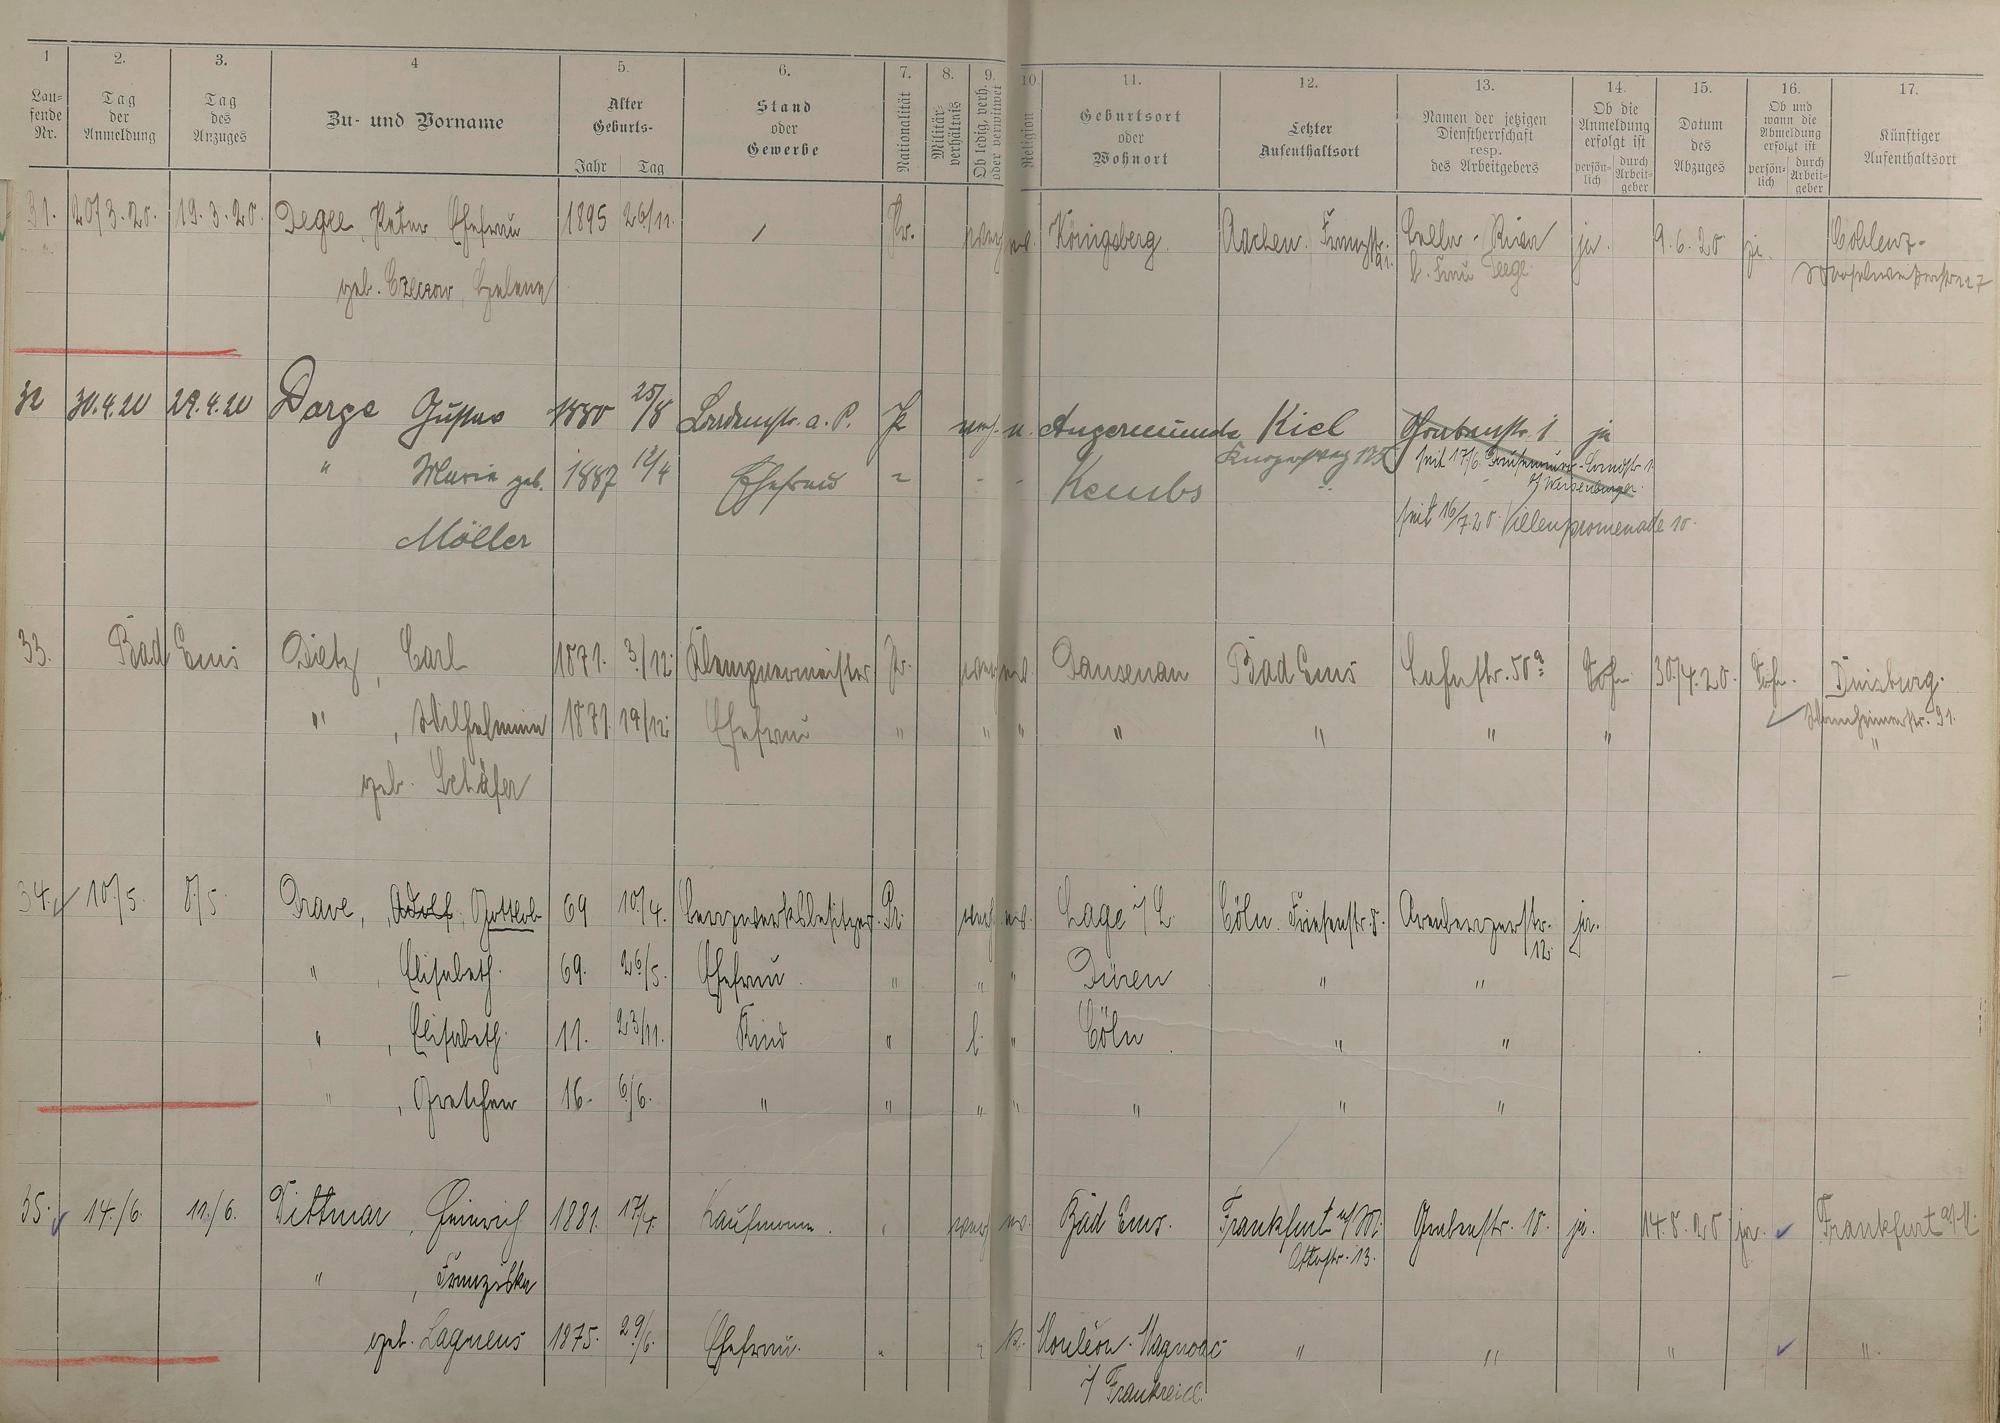 1 2. 3. 4 5. 6. 7. 8. 9. 10. 11. 12. 13. 14. 15. 16. 17.
Lau-
fende
Nr.
Tag
der
Anmeldung
Tag
des
Anzuges
Zu- und Vorname
Alter
Geburts-
Jahr Tag
Stand
oder
Gewerbe
Nationalität
Militär-
verhältnis
Ob ledig, verh.
oder verwitwet
Religion
Geburtsort
oder
Wohnort
Letzter
Aufenthaltsort
Namen der jetzigen
Dienstherrschaft
resp.
des Arbeitgebers
Ob die
Anmeldung
erfolgt ist
persön-
lich
durch
Arbeit-
geber
Datum
des
Abzuges
Ob und
wann die
Abmeldung
erfolgt ist
persön-
lich
durch
Arbeit-
geber
Künftiger
Aufenthaltsort
31. 20/3.20. 19.3.20. Degee, Peter Ehefrau 1895 26/11. / Pr. verh ev. Königsberg Aachen. Franzstr. 91. ja. 9.6.20 ja. Coblenz-
geb. Czeczow, Helene b. Frau Deege
32 30.4.20 29.4.20 Darge Gustav 1880 25/8 a. P. Pr verh. ev. Angermünde Kiel Grabenstr. 1 ja
" Marie geb. 1887 12/4 Ehefrau " - - Kembs Knooperweg 125 seit 17/6.
Möller seit 16/7.20. Villenpromenade 10.
33. Bad Ems Dietz, Carl 1871. 3./12. Klempnermeister Pr. verh ev. Dausenau Bad Ems Lahnstr. 50a Sohn 30./4.20. Sohn. Duisburg.
" , Wilhelmine 1871. 19/12. Ehefrau " " " " " " " Mannheimerstr. 91.
geb. Schäfer "
34. 10./5. 8./5. Drave, Adolf, Gottlob 69 10./4. Bergwerksbesitzer. Pr. verh ev. Lage i/L. Cöln. Friesenstr. 8. Arenbergerstr. 12. ja.
" , Elisabeth. 69. 26/5. Ehefrau. " " " Düren " "
" , Elisabeth. 11. 23/11. Kind " l. " Cöln " "
" , Gretchen 16. 6./6. " " " " " " "
35. 14./6. 11./6. Dittmar, Heinrich 1881. 17/5. Kaufmann. " verh ev. Bad Ems. Frankfurt a/M. Grabenstr. 10. ja. 14.8.20 ja. Frankfurt a/M.
Ottostr. 13.
" , Franziska
geb. Lagneus 1875. 29/6. Ehefrau. " " k. Monléon-Magnoac " " " "
i/ Frankreich